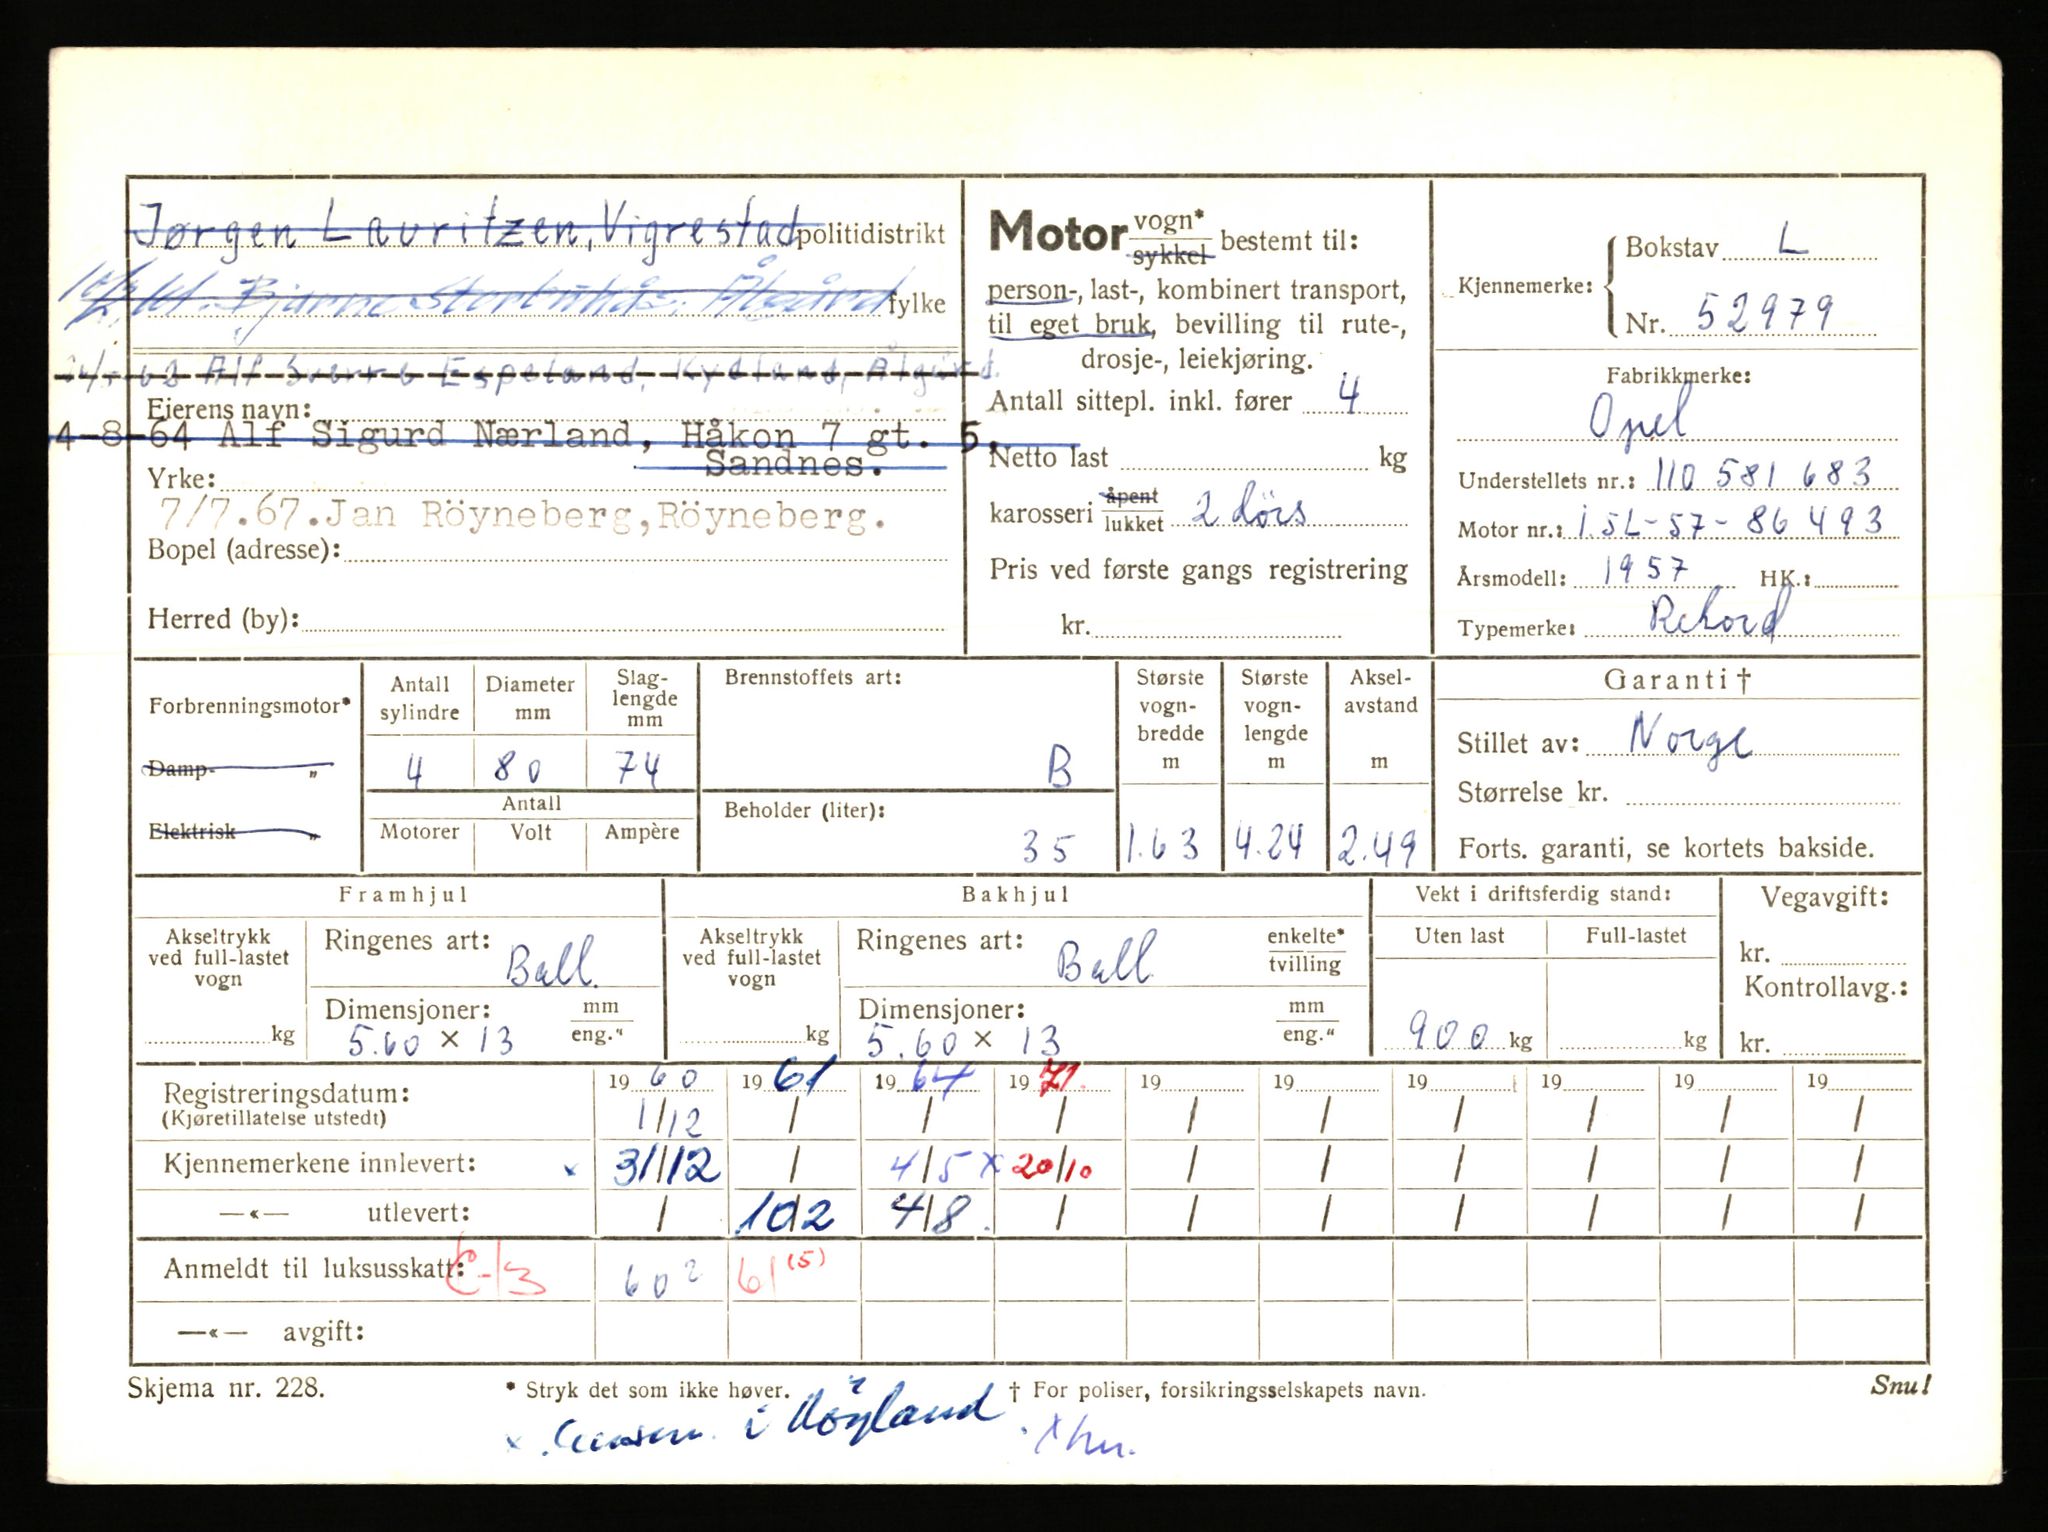 Jørgen Lauritzen, Vigrestad politidistrikt
Bjarne Ålgård fylke
Alf Sverre Espeland, Kydland, Ålgård.
Eierens navn:
4-8-64 Alf Sigurd Nærland, Håkon 7 gt. 5.
Sandnes.
Yrke:
7/7.67. Jan Röyneberg, Röyneberg.
Bopel (adresse):
Herred (by):
Motor vogn* sykkel bestemt til:
person-, last-, kombinert transport,
til eget bruk, bevilling til rute-,
drosje-, leiekjøring.
Antall sittepl. inkl. fører 4
Netto last kg
karosseri åpent lukket 2 dörs
Pris ved første gangs registrering
kr.
Kjennemerke: Bokstav L
Nr. 52979
Fabrikkmerke:
Opel
Understellets nr.: 110 581 683
Motor nr.: 1.5L-57-86493
Årsmodell: 1957 HK.:
Typemerke: Rekord
Forbrenningsmotor*
Damp- "
Elektrisk "
Antall sylindre
Diameter mm
Slag-lengde mm
4 80 74
Antall
Motorer Volt Ampère
Brennstoffets art:
B
Beholder (liter):
35
Største vogn-bredde m
1.63
Største vogn-lengde m
4.24
Aksel-avstand m
2.49
Garanti †
Stillet av: Norge
Størrelse kr.
Forts. garanti, se kortets bakside.
Framhjul
Akseltrykk ved full-lastet vogn
kg
Ringenes art: Ball.
Dimensjoner: mm
5.60 × 13 eng."
Bakhjul
Akseltrykk ved full-lastet vogn
kg
Ringenes art: Ball enkelte* tvilling
Dimensjoner: mm
5.60 × 13 eng."
Vekt i driftsferdig stand:
Uten last Full-lastet
900 kg kg
Vegavgift:
kr.
Kontrollavg.:
kr.
Registreringsdatum: 1960 1961 1964 1971. 19 19 19 19 19 19
(Kjøretillatelse utstedt) 1/12 / / / / / / / / /
Kjennemerkene innlevert: x 31/12 / 4/5 x 20/10 / / / / / /
—«— utlevert: / 10/2 4/8. / / / / / / /
Anmeldt til luksusskatt: 60² 61(5)
—«— avgift:
Skjema nr. 228.
* Stryk det som ikke høver.
† For poliser, forsikringsselskapets navn.
Snu!
x i Höyland